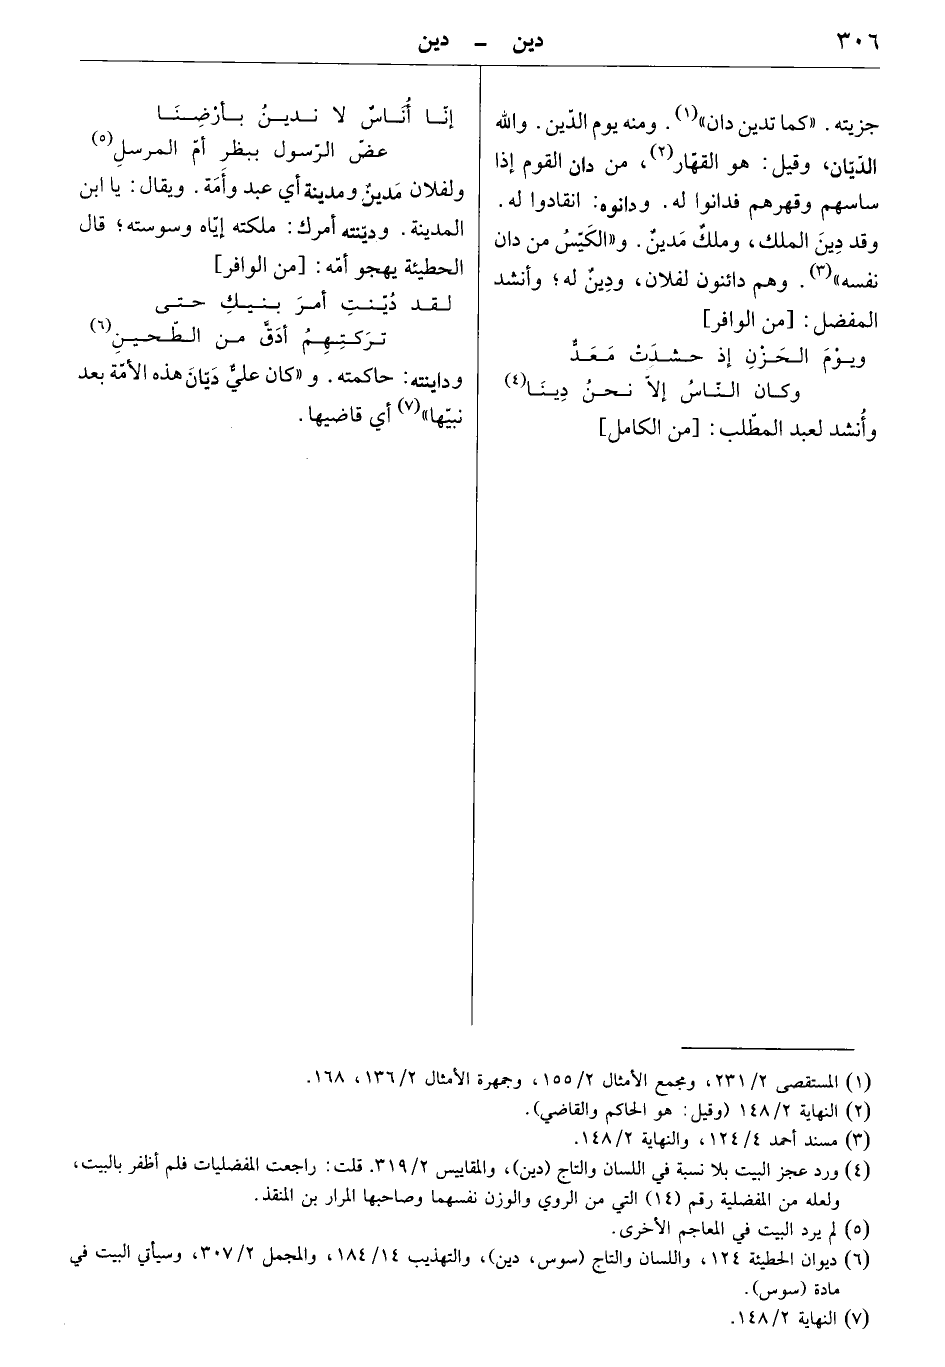 ٣٠٦
دين ــ دين
جزيته. «كما تدين دان»(١). ومنه يوم الدّين. والله
الدّيّان، وقيل: هو القهّار(٢)، من دان القوم إذا
ساسهم وقهرهم فدانوا له. ودانوه: انقادوا له.
وقد دِينَ الملك، وملكٌ مَدينٌ. و«الكَيّسُ من دان
نفسه»(٣). وهم دائنون لفلان، ودِينٌ له؛ وأنشد
المفضل: [من الوافر]
ويـوْمَ الـحَزْنِ إذ حـشدَتْ مَـعَـدٌّ
وكـان الـنّاسُ إلاّ نـحنُ دِينَـا(٤)
وأُنشد لعبد المطّلب: [من الكامل]
إنّـا أُنَـاسٌ لا نـديـنُ بـأرْضِـنَـا
عضّ الرّسول ببظرِ أمّ المرسلِ(٥)
ولفلان مَدينٌ ومدينة أي عبد وأَمَة. ويقال: يا ابن
المدينة. وديّنته أمرك: ملكته إيّاه وسوسته؛ قال
الحطيئة يهجو أمّه: [من الوافر]
لـقـد دُيّـنـتِ أمـرَ بـنـيـكِ حـتـى
تـركـتِـهِـمُ أدَقَّ مـن الـطّـحـيـنِ(٦)
وداينته: حاكمته. و «كان عليٌّ دَيّانَ هذه الأمّة بعد
نبيّها»(٧) أي قاضيها.
(١) المستقصى ٢/ ٢٣١، ومجمع الأمثال ٢/ ١٥٥، وجمهرة الأمثال ٢/ ١٣٦، ١٦٨.
(٢) النهاية ٢/ ١٤٨ (وقيل: هو الحاكم والقاضي).
(٣) مسند أحمد ٤/ ١٢٤، والنهاية ٢/ ١٤٨.
(٤) ورد عجز البيت بلا نسبة في اللسان والتاج (دين)، والمقاييس ٢/ ٣١٩. قلت: راجعت المفضليات فلم أظفر بالبيت،
ولعله من المفضلية رقم (١٤) التي من الروي والوزن نفسهما وصاحبها المرار بن المنقذ.
(٥) لم يرد البيت في المعاجم الأخرى.
(٦) ديوان الحطيئة ١٢٤، واللسان والتاج (سوس، دين)، والتهذيب ١٤/ ١٨٤، والمجمل ٢/ ٣٠٧، وسيأتي البيت في
مادة (سوس).
(٧) النهاية ٢/ ١٤٨.